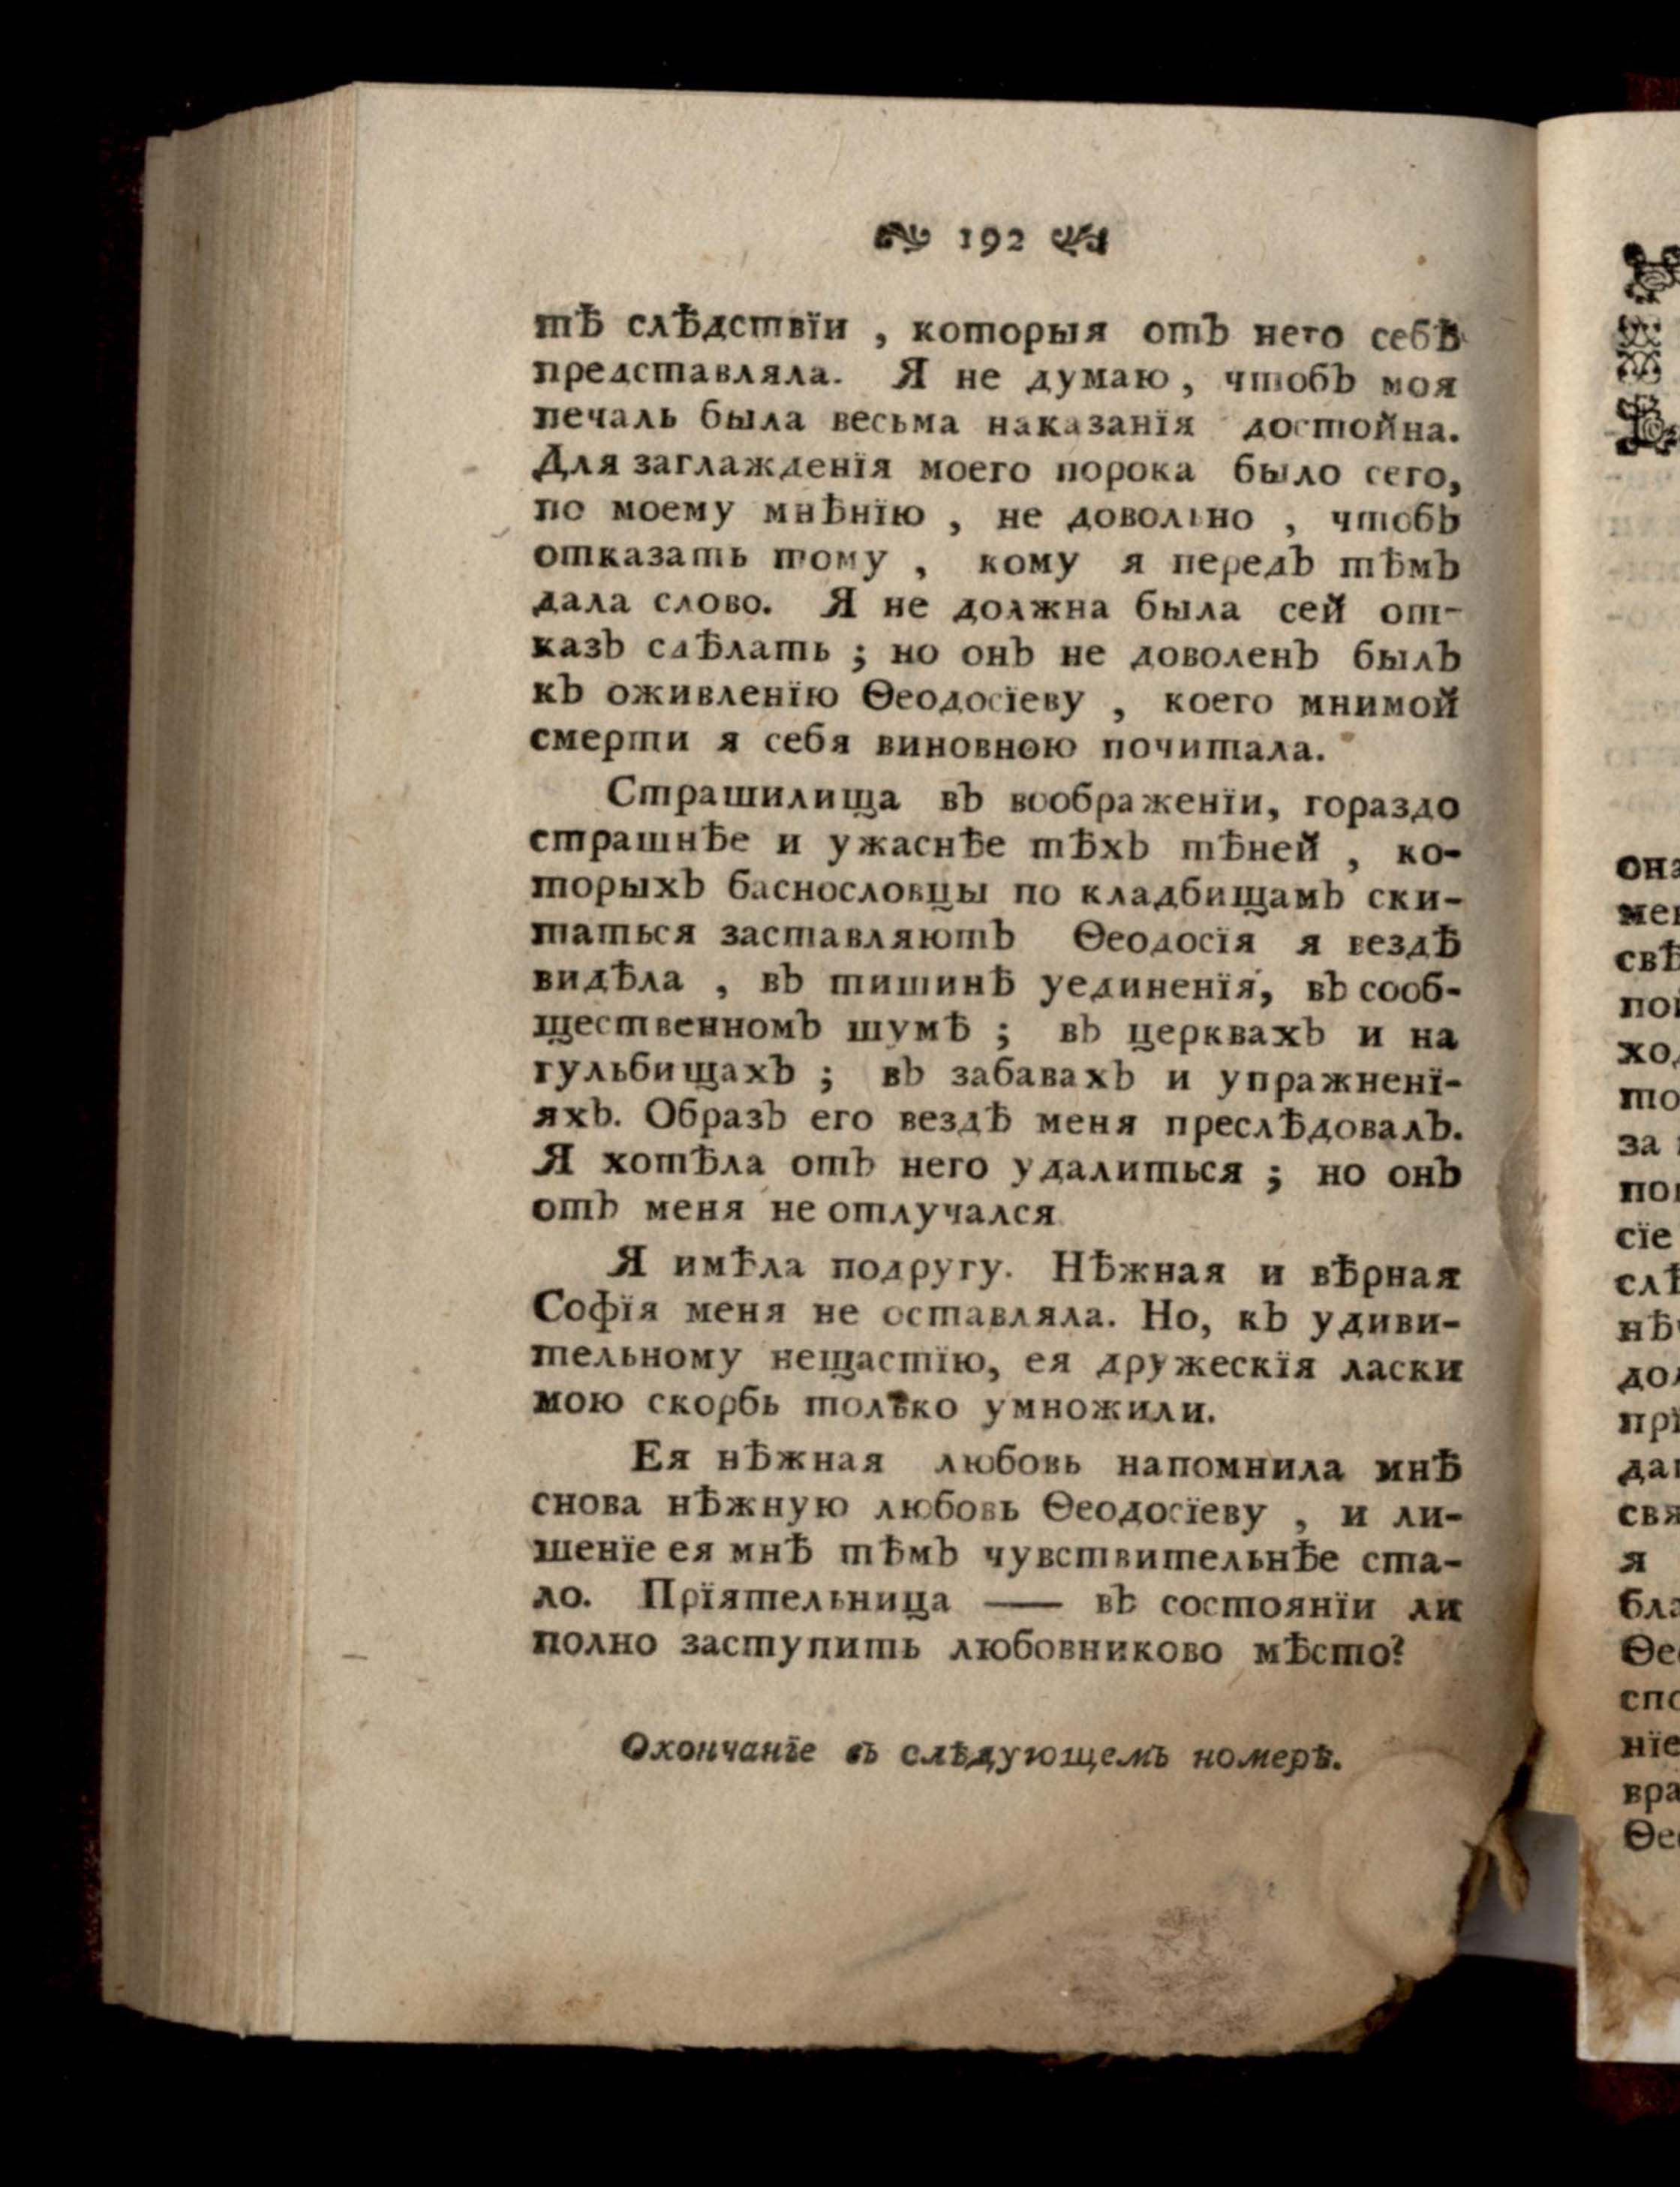 192
тѣ слѣдствїи , которыя отъ него себѣ
представляла. Я не думаю , чтобъ моя
печаль была весьма наказанїя достойна.
Для заглажденїя моего порока было сего,
по моему мнѣнїю , не довольно , чтобъ
отказать тому , кому я передъ тѣмъ
дала слово. Я не должна была сей от-
казъ сдѣлать ; но онъ не доволенъ былъ
къ оживленїю Ѳеодосїеву , коего мнимой
смерти я себя виновною почитала.
Страшилища въ воображенїи, гораздо
страшнѣе и ужаснѣе тѣхъ тѣней , ко-
торыхъ баснословцы по кладбищамъ ски-
таться заставляютъ Ѳеодосїя я вездѣ
видѣла , въ тишинѣ уединенїя, въ сооб-
щественномъ шумѣ ; въ церквахъ и на
гульбищахъ ; въ забавахъ и упражненї-
яхъ. Образъ его вездѣ меня преслѣдовалъ.
Я хотѣла отъ него удалиться ; но онъ
отъ меня не отлучался
Я имѣла подругу. Нѣжная и вѣрная
Софїя меня не оставляла. Но, къ удиви-
тельному нещастїю, ея дружескїя ласки
мою скорбь только умножили.
Ея нѣжная любовь напомнила мнѣ
снова нѣжную любовь Ѳеодосїеву , и ли-
шенїе ея мнѣ тѣмъ чувствительнѣе ста-
ло. Прїятельница — въ состоянїи ли
полно заступить любовниково мѣсто?
Окончанїе въ слѣдующемъ номерѣ.